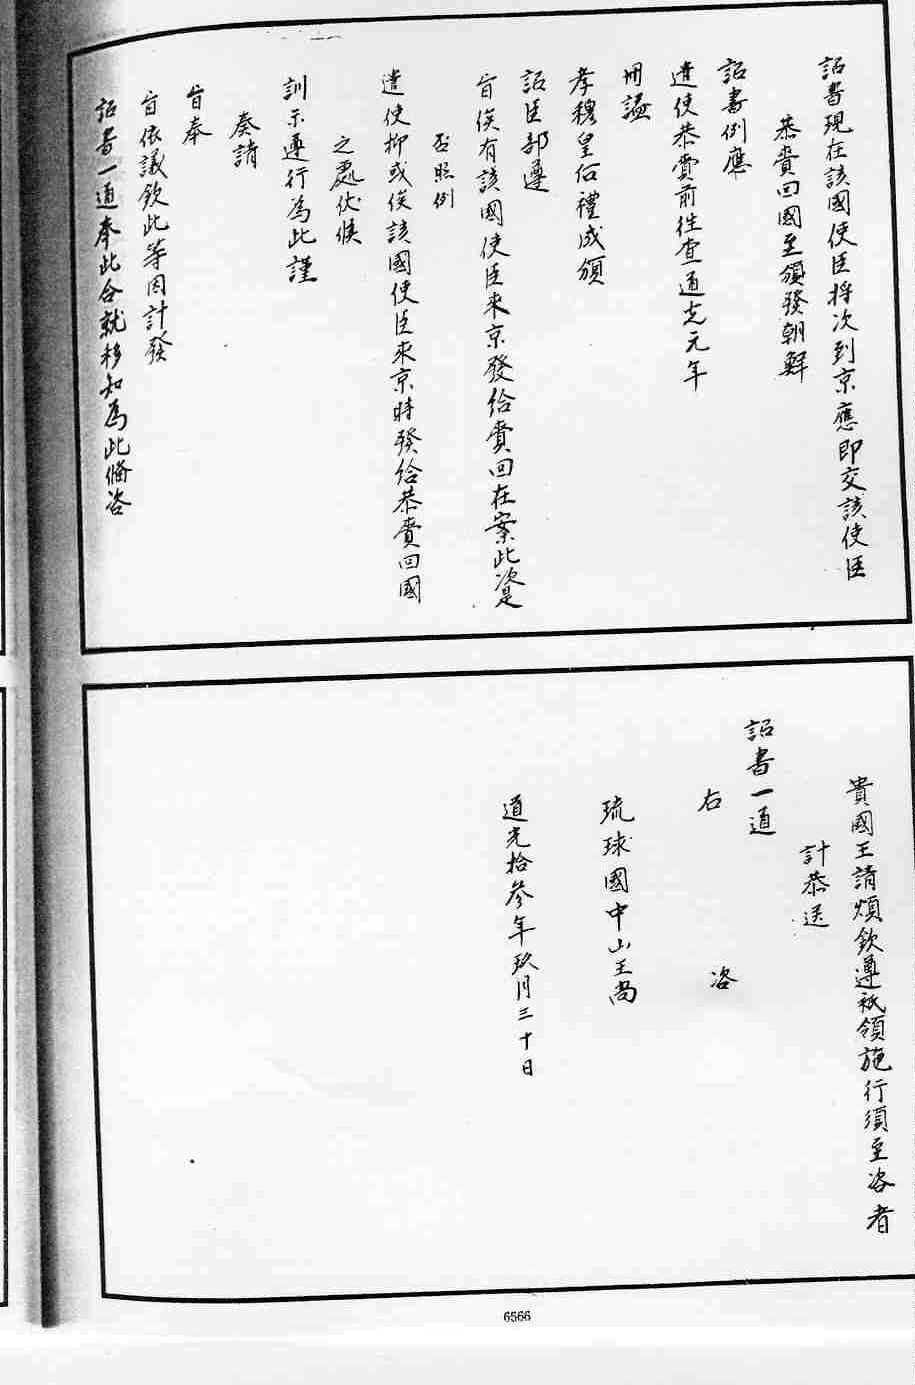 詔書現在該國使臣將次到京應即交該使臣
恭賚回國至頒發朝鮮
詔書例應
遣使恭賫前往查道光元年
冊謚
孝穆皇后禮成頒
詔臣部遵
旨俟有該國使臣來京發給賫回在案此次是
否照例
遣使抑或俟該國使臣來京時發給恭賫回國
之處伏候
訓示遵行為此謹
奏請
旨奉
旨依議欽此等因計發
詔書一道奉此合就移知為此備咨
貴國王請煩欽遵祗領施行須至咨者
計恭送
詔書一道
右　咨
琉球國中山王尚
道光拾參年玖月三十日
6566